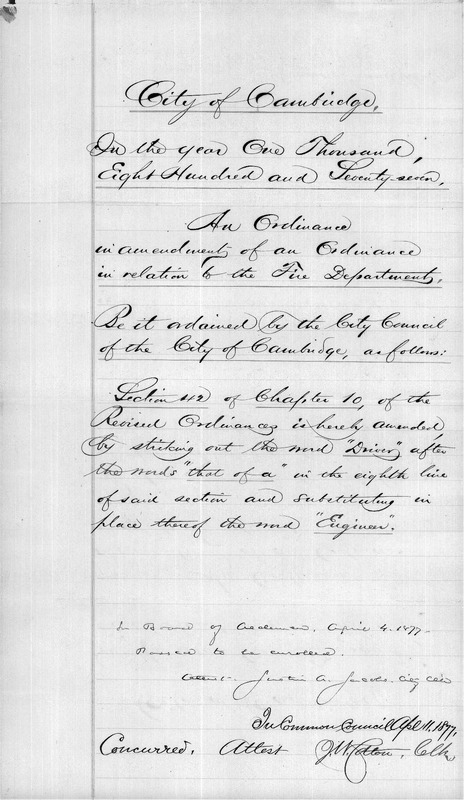 City of Cambridge.
In the year One Thousand,
Eight Hundred and Seventy-seven.
An Ordinance
in amendment of an Ordinance
in relation to the Fire Department.
Be it ordained by the City Council
of the City of Cambridge, as follows:
Section 42 of Chapter 10, of the
Revised Ordinances is hereby amended,
by striking out the word "Driver" after
the words "that of a" in the eighth line
of said section and substituting in
place thereof the word "Engineer".
In Board of Aldermen. April 4. 1877.
Passed to be enrolled.
Attest. Justin A. Jacobs. City Clerk
In Common Council Apl 11. 1877,
Concurred. Attest J. W. Cotton, Clk.